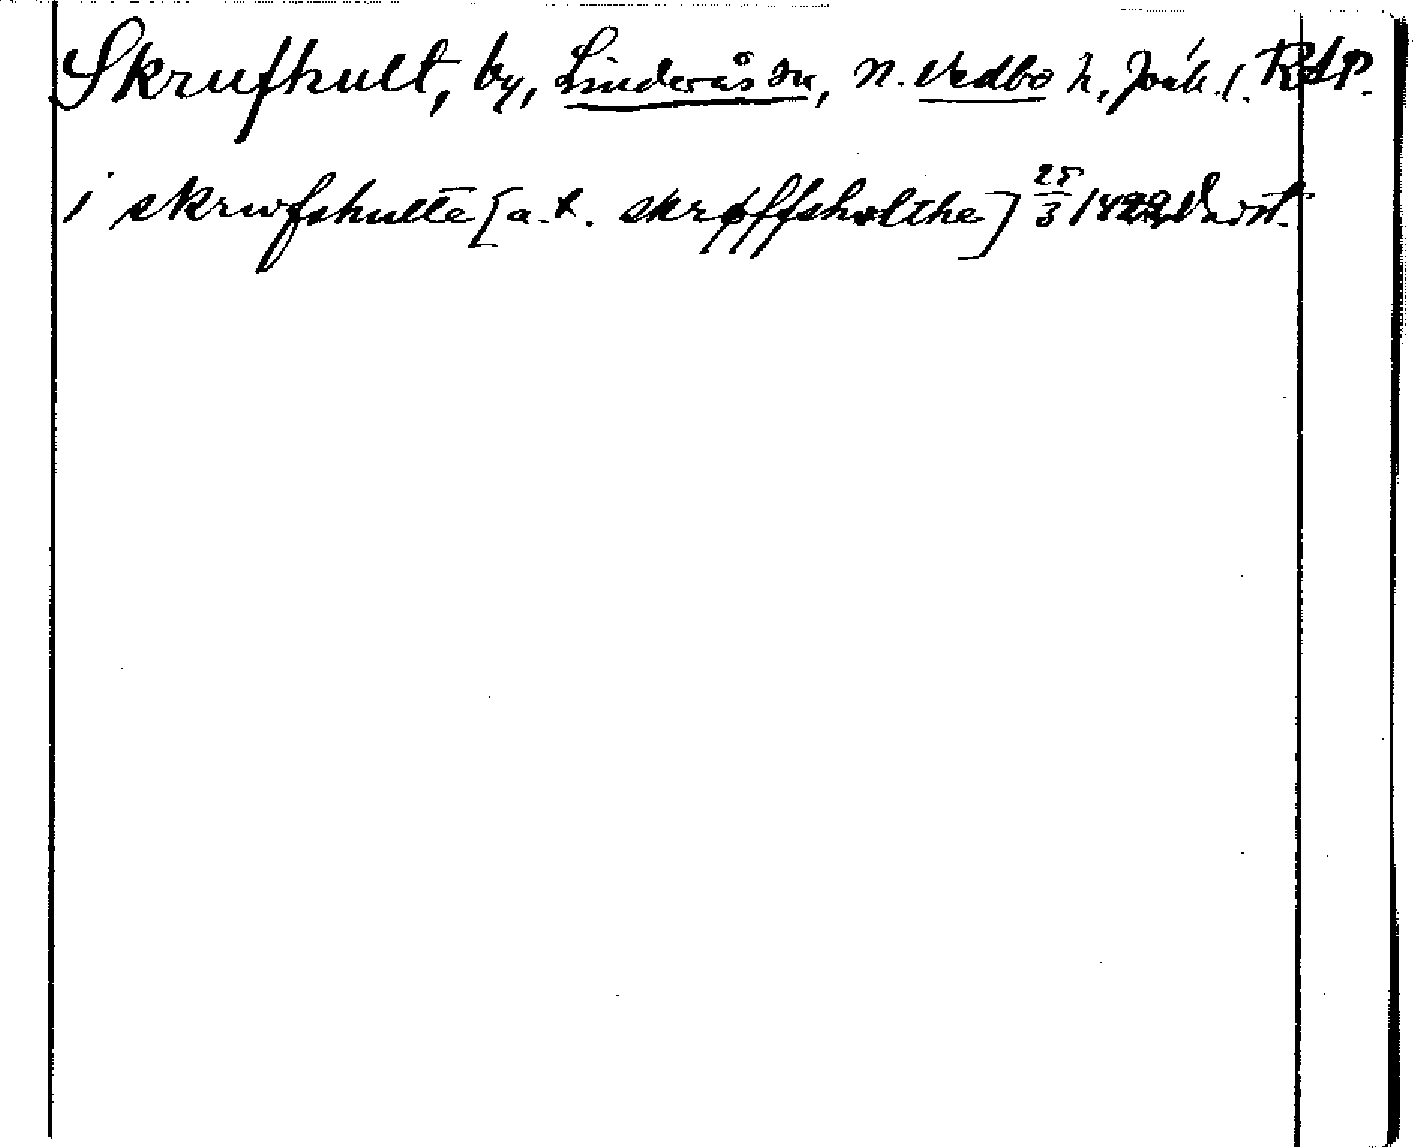 Skrufhult, by, Linderås sn, N. Vedbo h, Jönk. l. RAP.
i skrwfshultē [a.t. skrøffsholthe] 25/3 1422 Avst.